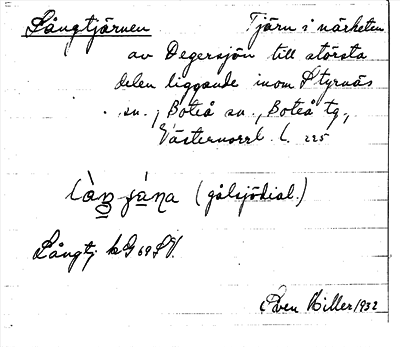 Långtjärnen Tjärn i närheten
av Degersjön till största
delen liggande inom Styrnäs
sn., Boteå sn., Boteå tg.,
Västernorrl. l. 225
(gålsjödial.)
Långtj. kG 69 SV.
Sven Hiller 1932